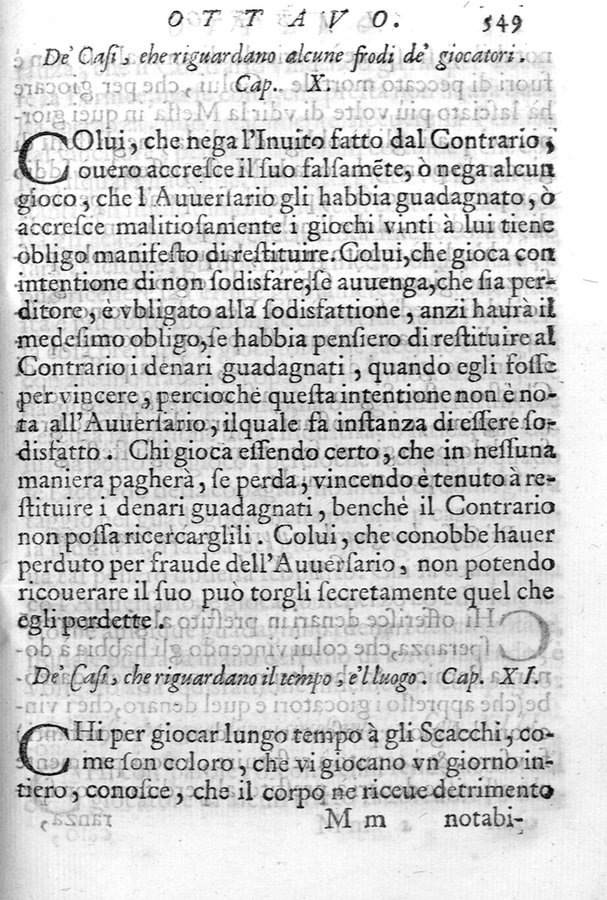 OTTAVO. 549
De' Casi, che riguardano alcune frodi de' giocatori.
Cap. X.
COlui, che nega l'Inuito fatto dal Contrario,
ouero accresce il suo falsamẽte, ò nega alcun
gioco, che l Auuersario gli habbia guadagnato, ò
accresce malitiosamente i giochi vinti à lui tiene
obligo manifesto di restituire. Colui, che gioca con
intentione di non sodisfare, se auuenga, che sia per-
ditore, è vbligato alla sodisfattione, anzi haurà il
medesimo obligo, se habbia pensiero di restituire al
Contrario i denari guadagnati, quando egli fosse
per vincere, percioche questa intentione non è no-
ta all'Auuersario, ilquale fà instanza di essere so-
disfatto. Chi gioca essendo certo, che in nessuna
maniera pagherà, se perda, vincendo è tenuto à re-
stituire i denari guadagnati, benche il Contrario
non possa ricercarglili. Colui, che conobbe hauer
perduto per fraude dell'Auuersario, non potendo
ricouerare il suo può torgli secretamente quel che
egli perdette.
De' Casi, che riguardano il tempo, e'l luogo. Cap. XI.
CHi per giocar lungo tempo à gli Scacchi, co-
me son coloro, che vi giocano vn giorno in-
tiero, conosce, che il corpo ne riceue detrimento
M m notabi-